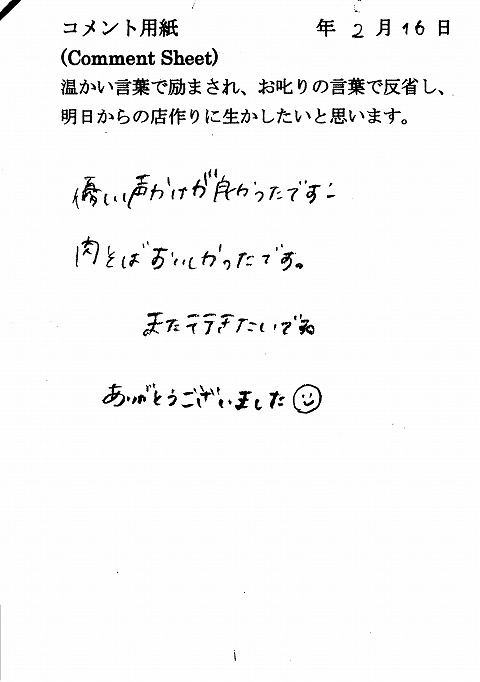 コメント用紙 年 2 月 16 日
(Comment Sheet)
温かい言葉で励まされ、お叱りの言葉で反省し、
明日からの店作りに生かしたいと思います。
優しい声かけが良かったです
肉そばおいしかったです。
また行きたいです
ありがとうございました